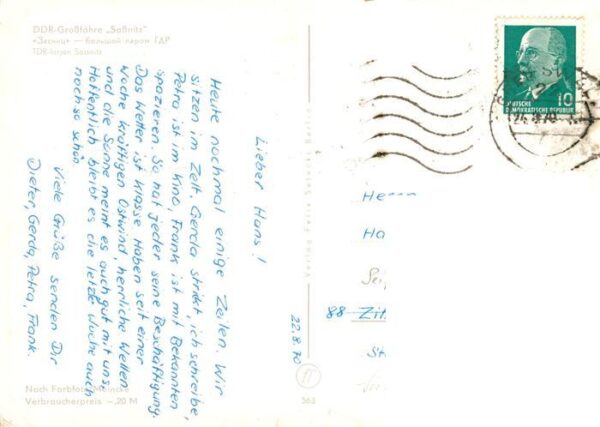 DDR-Großfähre „Saßnitz"
TDR-färjen Sassnitz
Lieber Hans!
Heute nochmal einige Zeilen. Wir
sitzen im Zelt. Gerda strickt, ich schreibe,
Petra ist im Kino, Frank ist mit Bekannten
spazieren. So hat jeder seine Beschäftigung.
Das Wetter ist Klasse. Haben seit einer
Woche kräftigen Ostwind, herrliche Wellen
und die Sonne meint es auch gut mit uns.
Hoffentlich bleibt es die letzte Woche auch
noch so schön.
Viele Grüße senden Dir
Dieter, Gerda, Petra, Frank.
Nach Farbfoto
Verbraucherpreis –,20 M
22.8.70
363
DEUTSCHE
DEMOKRATISCHE REPUBLIK
10
Herrn
Ha
88 Zit